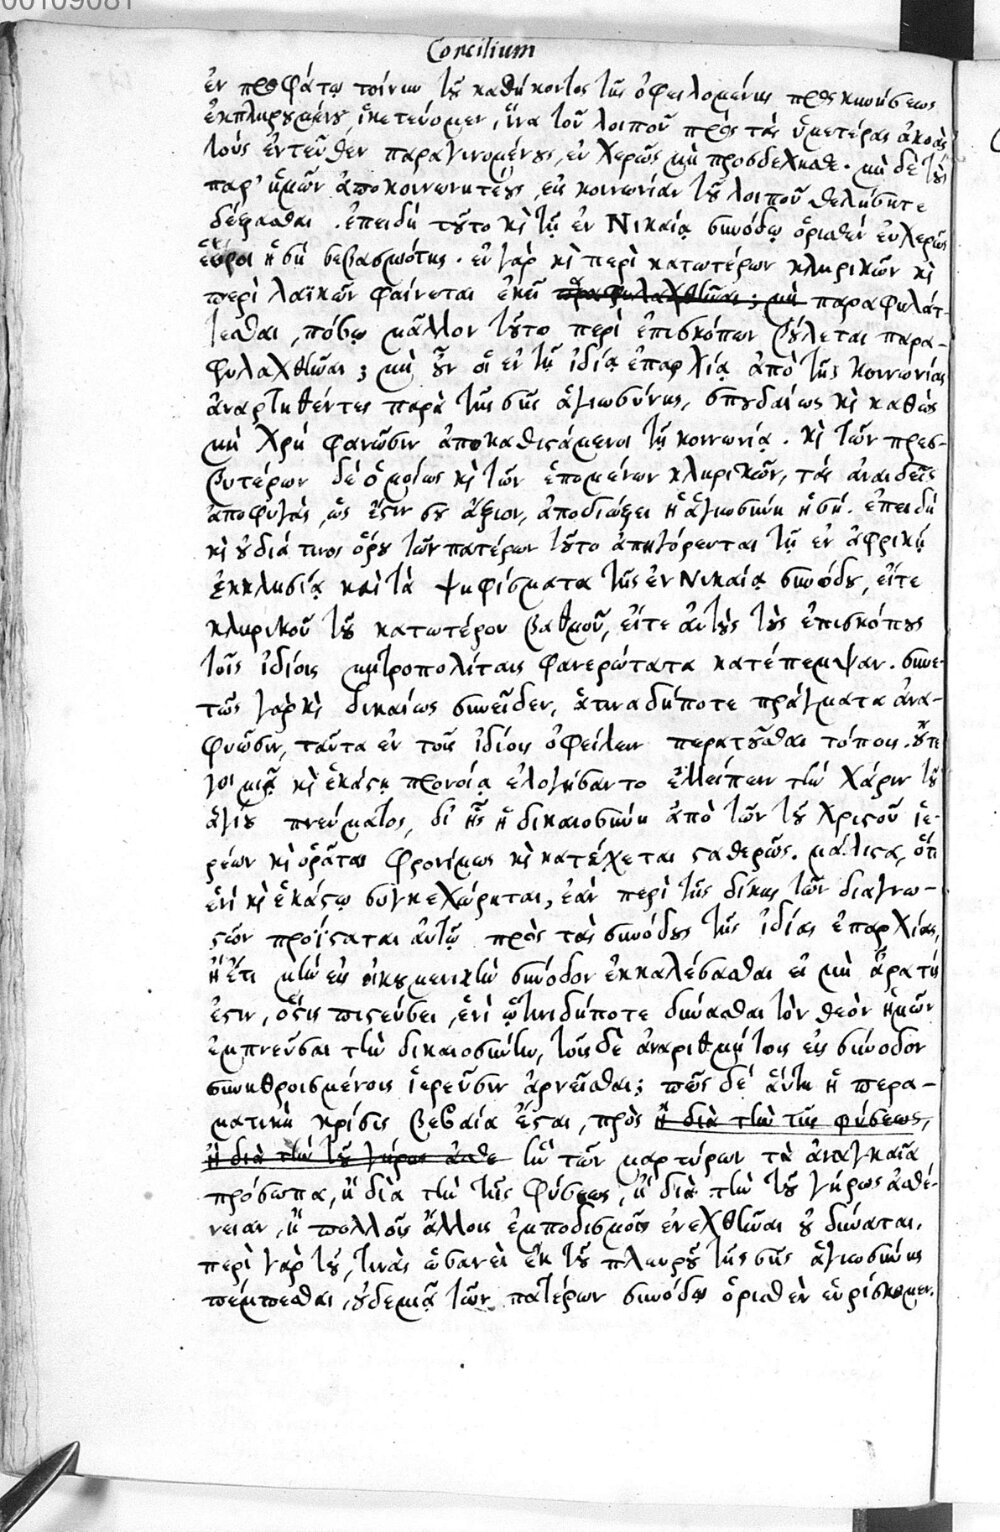 00109081
Concilium
ἐν προφάτῳ τοίνυν τοῦ καθήκοντος τῆς ὀφειλομένης προσκυνήσεως
ἐκπληρουμένου, ἱκετεύομεν, ἵνα τοῦ λοιποῦ πρὸς τὰς ὑμετέρας ἀκοὰς
τοὺς ἐντεῦθεν παραγινομένους, εὐχερῶς μὴ προσδέχησθε. μὴ δὲ τοὺς
παρ' ἡμῶν ἀποκοινωνητέους, εἰς κοινωνίαν τοῦ λοιποῦ θελήσητε
δέξασθαι. ἐπειδὴ τοῦτο καὶ τῇ ἐν Νικαίᾳ συνόδῳ ὁρισθὲν εὐχερῶς
εὕροι ἡ σὴ σεβασμιότης. εἰ γὰρ καὶ περὶ κατωτέρων κληρικῶν καὶ
περὶ λαϊκῶν φαίνεται ἐκεῖ παραφυλαχθῆναι; μὴ παραφυλάτ-
τεσθαι, πόσῳ μᾶλλον τοῦτο περὶ ἐπισκόπων βούλεται παρα-
φυλαχθῆναι; μὴ οὖν οἱ ἐν τῇ ἰδίᾳ ἐπαρχίᾳ ἀπὸ τῆς κοινωνίας
ἀναρτηθέντες παρὰ τῆς σῆς ἁγιωσύνης, σπουδαίως καὶ καθὼς
μὴ χρὴ φανῶσιν ἀποκαθιστάμενοι τῇ κοινωνίᾳ. καὶ τῶν πρεσ-
βυτέρων δὲ ὁμοίως καὶ τῶν ἑπομένων κληρικῶν, τὰς ἀναιδεῖς
ἀποφυγὰς, ὡς ἔστιν σου ἄξιον, ἀποδιώξει ἡ ἁγιωσύνη ἡ σή. ἐπειδὴ
καὶ οὐ διά τινος ὅρου τῶν πατέρων τοῦτο ἀπηγόρευται τῇ ἐν ἀφρικῇ
ἐκκλησίᾳ καὶ τὰ ψηφίσματα τῆς ἐν Νικαίᾳ συνόδου, εἴτε
κληρικοῦ τοῦ κατωτέρου βαθμοῦ, εἴτε αὐτοὺς τοὺς ἐπισκόπους
τοῖς ἰδίοις μητροπολίταις φανερώτατα κατέπεμψαν. συνε-
τῶς γὰρ καὶ δικαίως συνεῖδεν, ἅτινα δήποτε πράγματα ἀνα-
φυῶσιν, ταῦτα ἐν τοῖς ἰδίοις ὀφείλειν περατοῦσθαι τόποις. οὔτε
γὰρ μιᾷ καὶ ἑκάστῃ προνοίᾳ ἐλογήσαντο ἐλλείπειν τὴν χάριν τοῦ
ἁγίου πνεύματος, δι' ἧς ἡ δικαιοσύνη ἀπὸ τῶν τοῦ Χριστοῦ ἱε-
ρέων καὶ ὁρᾶται φρονίμως καὶ κατέχεται σταθερῶς. μάλιστα, ὅτι
ἑνὶ καὶ ἑκάστῳ συγκεχώρηται, ἐὰν περὶ τῆς δίκης τῶν διαγνω-
στῶν προΐσταται αὐτῷ πρὸς τὰς συνόδους τῆς ἰδίας ἐπαρχίας,
ἢ ἔτι μὴν εἰς οἰκουμενικὴν σύνοδον ἐκκαλέσασθαι εἰ μὴ ἄρα τίς
ἐστιν, ὅστις πιστεύσει, ἑνὶ ᾧτινιδήποτε δύνασθαι τὸν θεὸν ἡμῶν
ἐμπνεῦσαι τὴν δικαιοσύνην, τοῖς δὲ ἀναριθμήτοις εἰς σύνοδον
συνηθροισμένοις ἱερεῦσιν ἀρνεῖσθαι; πῶς δὲ αὕτη ἡ περα-
ματικὴ κρίσις βεβαία ἔσται, πρὸς ἢ διὰ τὴν τῆς φύσεως,
ἢ διὰ τὴν τοῦ γήρως ἀσθε ἣν τῶν μαρτύρων τὰ ἀναγκαῖα
πρόσωπα, ἢ διὰ τὴν τῆς φύσεως, ἢ διὰ τὴν τοῦ γήρως ἀσθέ-
νειαν, ἢ πολλοῖς ἄλλοις ἐμποδισμοῖς ἐνεχθῆναι οὐ δύναται.
περὶ γὰρ τοῦ, τινὰς ὡσανεὶ ἐκ τοῦ πλευροῦ τῆς σῆς ἁγιωσύνης
πέμπεσθαι, οὐδεμιᾷ τῶν πατέρων συνόδῳ ὁρισθὲν εὑρίσκομεν.